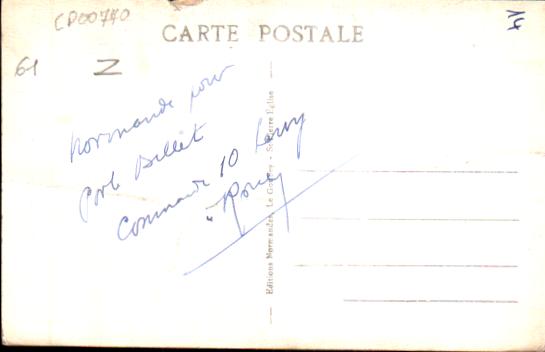 CP00740
CARTE POSTALE
61
Z
Normande pour
Porte Billet
Commande 10 Leroy
Editions Normandes, Le Goubey - St-Pierre Eglise